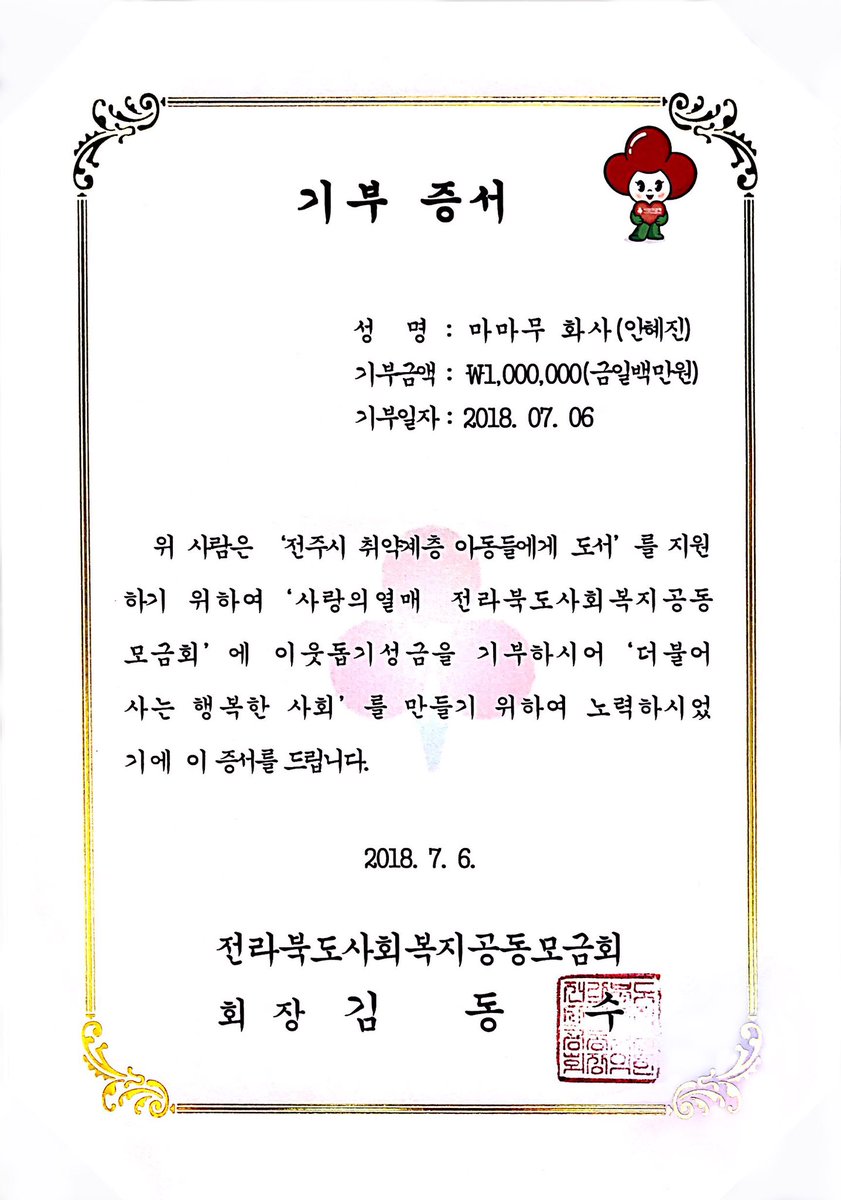 기부 증서
성 명 : 마마무 화사(안혜진)
기부금액 : ₩1,000,000(금일백만원)
기부일자 : 2018. 07. 06
위 사람은 '전주시 취약계층 아동들에게 도서' 를 지원
하기 위하여 '사랑의열매 전라북도사회복지공동
모금회' 에 이웃돕기성금을 기부하시어 '더불어
사는 행복한 사회' 를 만들기 위하여 노력하시었
기에 이 증서를 드립니다.
2018. 7. 6.
전라북도사회복지공동모금회
회 장 김 동 수